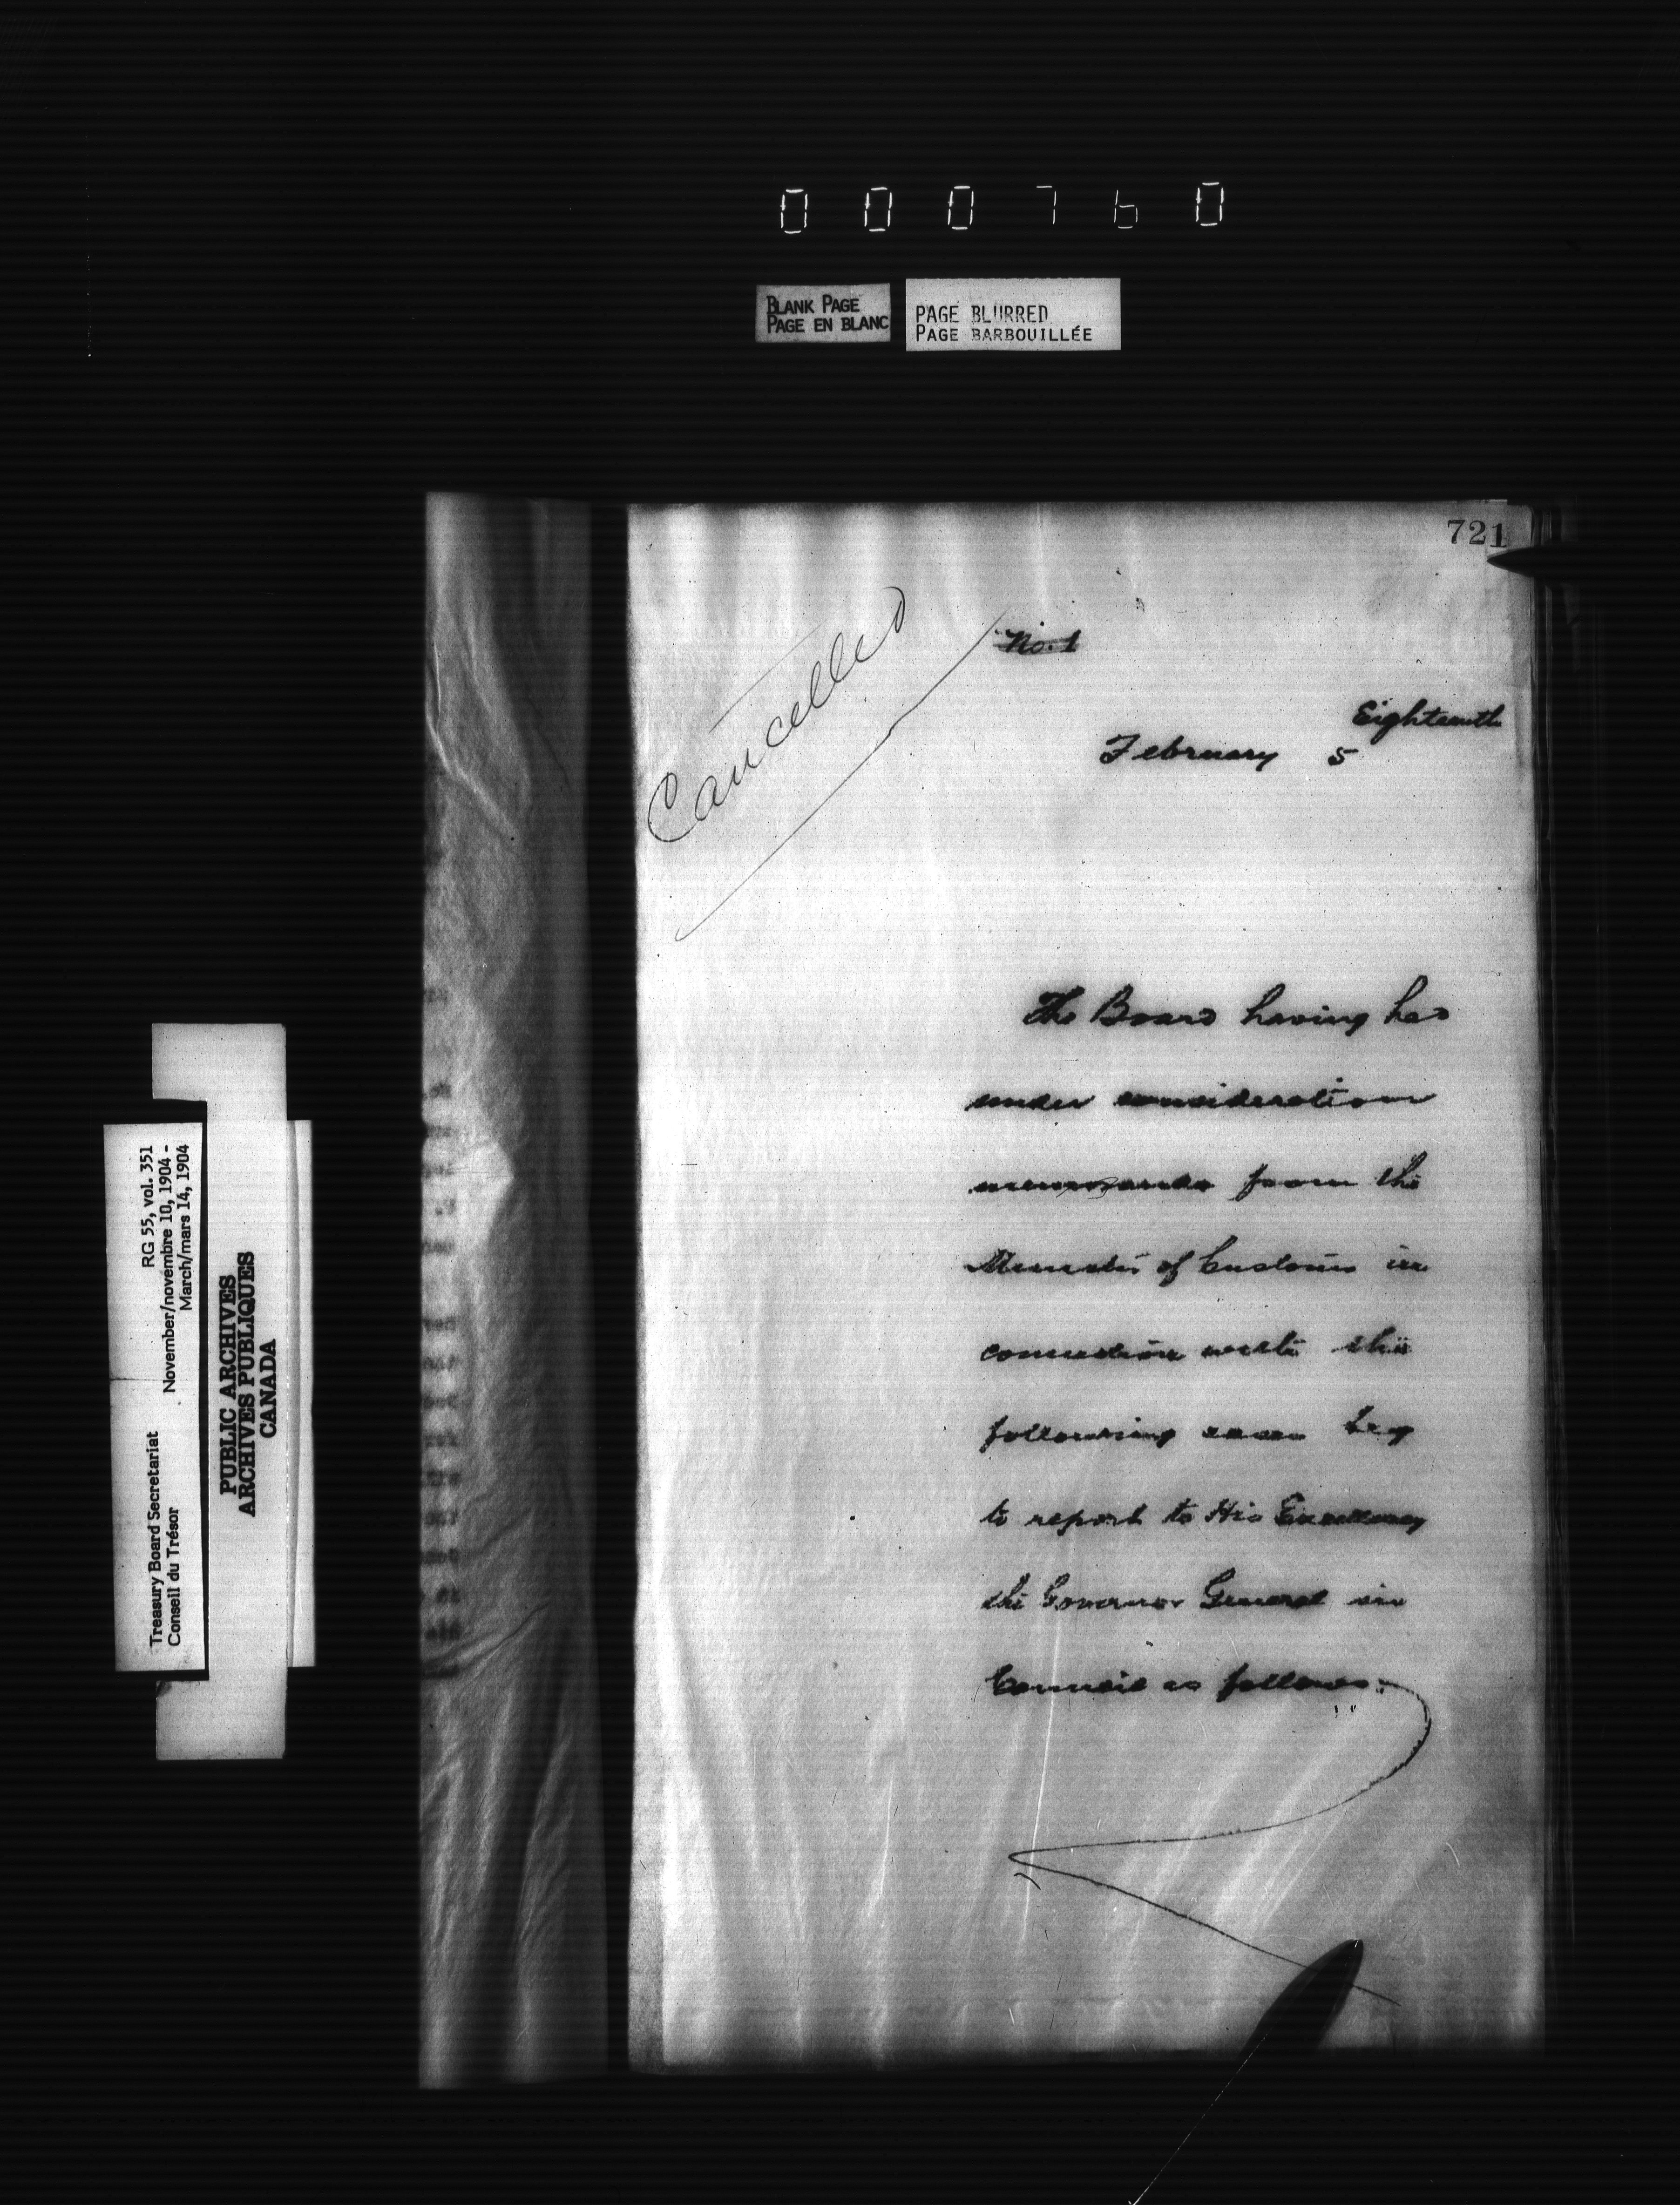 000760
BLANK PAGE
PAGE EN BLANC
PAGE BLURRED
PAGE BARBOUILLÉE
721
Cancelled
No. 1
Eighteenth
February 5
The Board having had
under consideration
memoranda from the
Minister of Customs in
connection with the
following cases beg
to report to His Excellency
the Governor General in
Council as follows:
Treasury Board Secretariat RG 55, vol. 351
Conseil du Trésor November/novembre 10, 1904 -
March/mars 14, 1904
PUBLIC ARCHIVES
ARCHIVES PUBLIQUES
CANADA